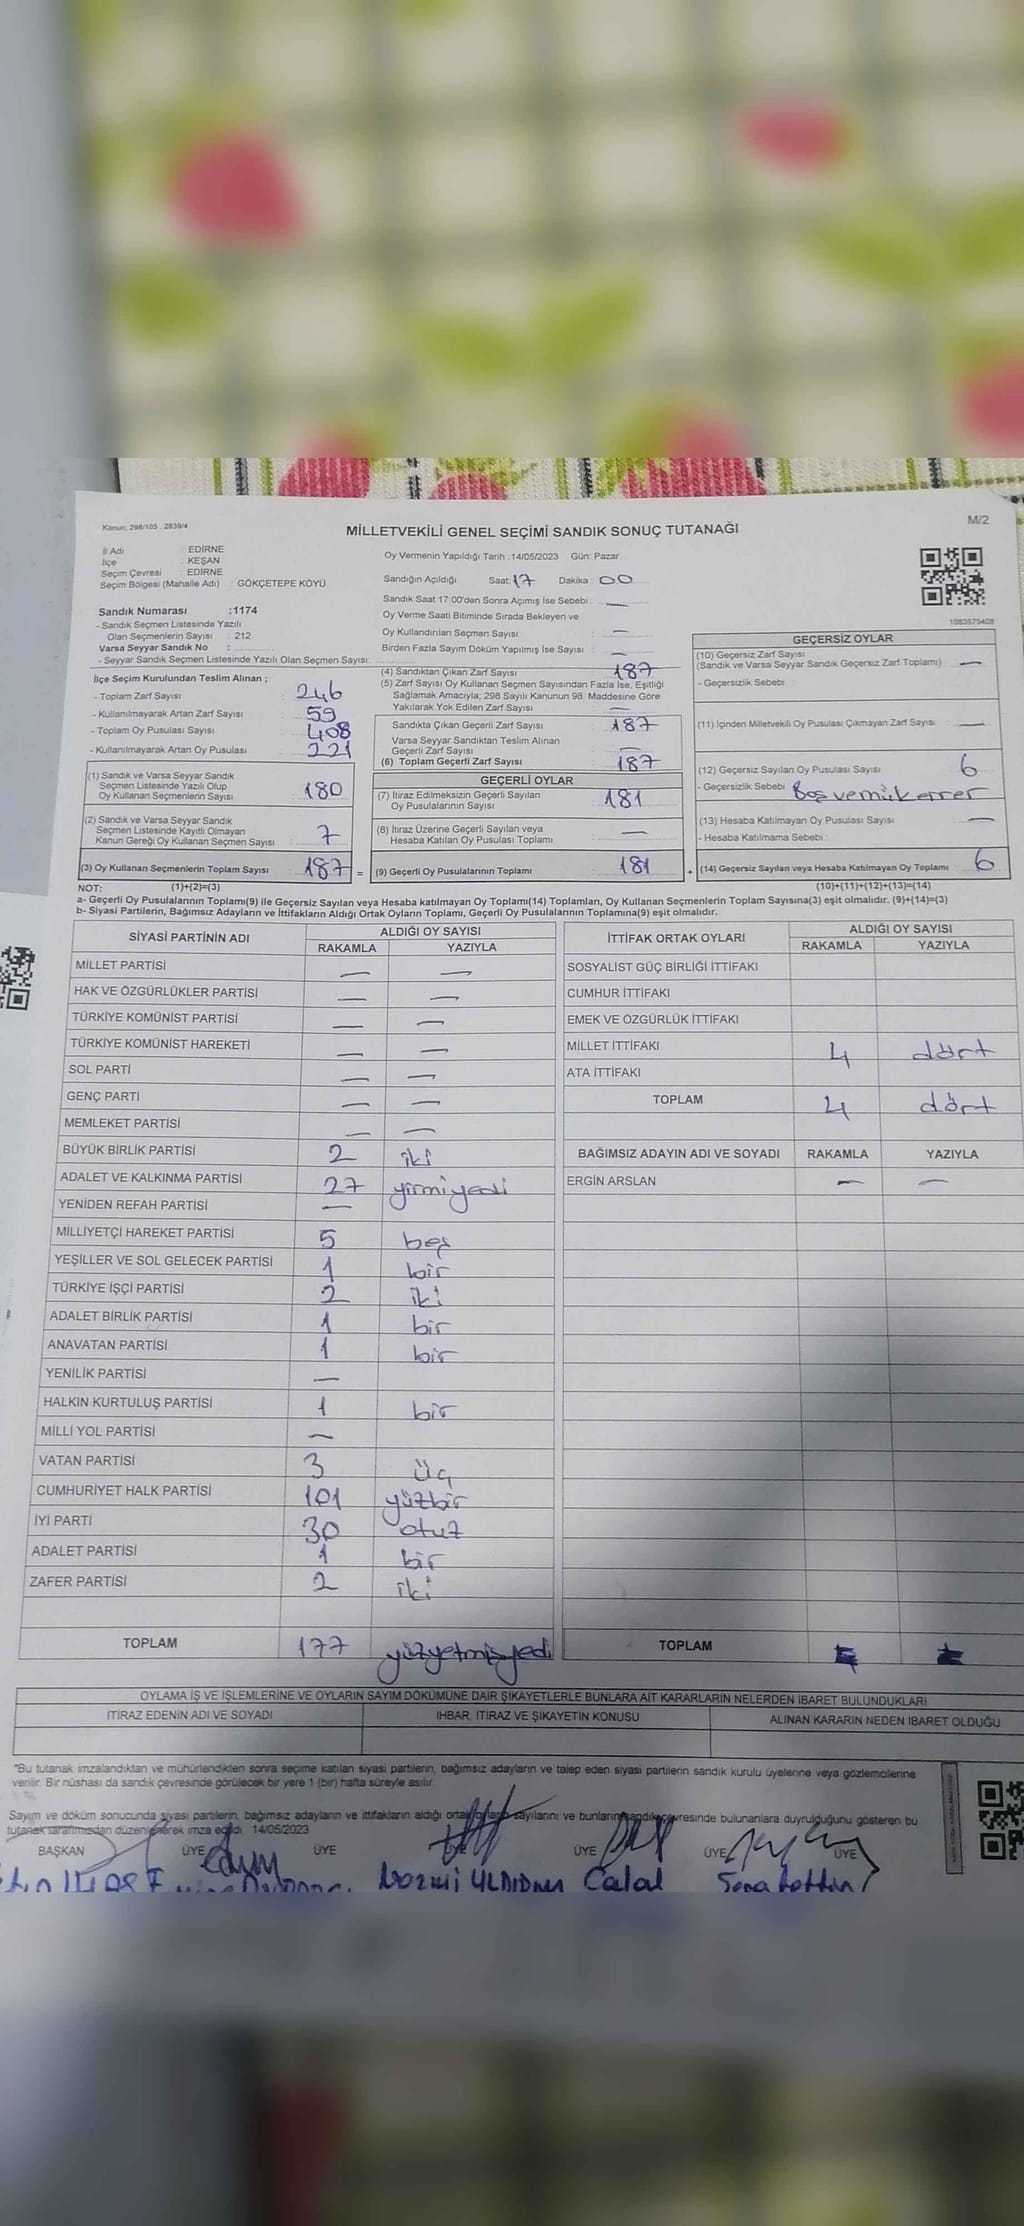 Kanun: 298/105 , 2839/4
M/2
MİLLETVEKİLİ GENEL SEÇİMİ SANDIK SONUÇ TUTANAĞI
İl Adı : EDİRNE
İlçe : KEŞAN
Seçim Çevresi : EDİRNE
Seçim Bölgesi (Mahalle Adı) : GÖKÇETEPE KÖYÜ
Sandık Numarası :1174
- Sandık Seçmen Listesinde Yazılı
Olan Seçmenlerin Sayısı : 212
Varsa Seyyar Sandık No :
- Seyyar Sandık Seçmen Listesinde Yazılı Olan Seçmen Sayısı:
İlçe Seçim Kurulundan Teslim Alınan ;
- Toplam Zarf Sayısı : 246
- Kullanılmayarak Artan Zarf Sayısı : 59
- Toplam Oy Pusulası Sayısı : 408
- Kullanılmayarak Artan Oy Pusulası : 221
(1) Sandık ve Varsa Seyyar Sandık
Seçmen Listesinde Yazılı Olup
Oy Kullanan Seçmenlerin Sayısı : 180
(2) Sandık ve Varsa Seyyar Sandık
Seçmen Listesinde Kayıtlı Olmayan
Kanun Gereği Oy Kullanan Seçmen Sayısı : 7
(3) Oy Kullanan Seçmenlerin Toplam Sayısı : 187 =
Oy Vermenin Yapıldığı Tarih :14/05/2023 Gün: Pazar
Sandığın Açıldığı Saat: 17 Dakika : 00
Sandık Saat 17:00'den Sonra Açımış İse Sebebi : —
Oy Verme Saati Bitiminde Sırada Bekleyen ve
Oy Kullandırılan Seçmen Sayısı : —
Birden Fazla Sayım Döküm Yapılmış İse Sayısı : —
(4) Sandıktan Çıkan Zarf Sayısı : 187
(5) Zarf Sayısı Oy Kullanan Seçmen Sayısından Fazla İse, Eşitliği
Sağlamak Amacıyla, 298 Sayılı Kanunun 98. Maddesine Göre
Yakılarak Yok Edilen Zarf Sayısı : —
Sandıkta Çıkan Geçerli Zarf Sayısı : 187
Varsa Seyyar Sandıktan Teslim Alınan
Geçerli Zarf Sayısı : —
(6) Toplam Geçerli Zarf Sayısı : 187
GEÇERLİ OYLAR
(7) İtiraz Edilmeksizin Geçerli Sayılan
Oy Pusulalarının Sayısı : 181
(8) İtiraz Üzerine Geçerli Sayılan veya
Hesaba Katılan Oy Pusulası Toplamı : —
(9) Geçerli Oy Pusulalarının Toplamı : 181 +
1083575408
GEÇERSİZ OYLAR
(10) Geçersiz Zarf Sayısı
(Sandık ve Varsa Seyyar Sandık Geçersiz Zarf Toplamı) : —
- Geçersizlik Sebebi :
(11) İçinden Milletvekili Oy Pusulası Çıkmayan Zarf Sayısı : —
(12) Geçersiz Sayılan Oy Pusulası Sayısı : 6
- Geçersizlik Sebebi : Boş ve mükerrer
(13) Hesaba Katılmayan Oy Pusulası Sayısı : —
- Hesaba Katılmama Sebebi :
(14) Geçersiz Sayılan veya Hesaba Katılmayan Oy Toplamı : 6
NOT: (1)+(2)=(3) (10)+(11)+(12)+(13)=(14)
a- Geçerli Oy Pusulalarının Toplamı(9) ile Geçersiz Sayılan veya Hesaba katılmayan Oy Toplamı(14) Toplamları, Oy Kullanan Seçmenlerin Toplam Sayısına(3) eşit olmalıdır. (9)+(14)=(3)
b- Siyasi Partilerin, Bağımsız Adayların ve İttifakların Aldığı Ortak Oyların Toplamı, Geçerli Oy Pusulalarının Toplamına(9) eşit olmalıdır.
SİYASİ PARTİNİN ADI ALDIĞI OY SAYISI
RAKAMLA YAZIYLA
MİLLET PARTİSİ — —
HAK VE ÖZGÜRLÜKLER PARTİSİ — —
TÜRKİYE KOMÜNİST PARTİSİ — —
TÜRKİYE KOMÜNİST HAREKETİ — —
SOL PARTİ — —
GENÇ PARTİ — —
MEMLEKET PARTİSİ — —
BÜYÜK BİRLİK PARTİSİ 2 iki
ADALET VE KALKINMA PARTİSİ 27 yirmiyedi
YENİDEN REFAH PARTİSİ —
MİLLİYETÇİ HAREKET PARTİSİ 5 beş
YEŞİLLER VE SOL GELECEK PARTİSİ 1 bir
TÜRKİYE İŞÇİ PARTİSİ 2 iki
ADALET BİRLİK PARTİSİ 1 bir
ANAVATAN PARTİSİ 1 bir
YENİLİK PARTİSİ —
HALKIN KURTULUŞ PARTİSİ 1 bir
MİLLİ YOL PARTİSİ —
VATAN PARTİSİ 3 üç
CUMHURİYET HALK PARTİSİ 101 yüzbir
İYİ PARTİ 30 otuz
ADALET PARTİSİ 1 bir
ZAFER PARTİSİ 2 iki
TOPLAM 177 yüzyetmişyedi
İTTİFAK ORTAK OYLARI ALDIĞI OY SAYISI
RAKAMLA YAZIYLA
SOSYALİST GÜÇ BİRLİĞİ İTTİFAKI
CUMHUR İTTİFAKI
EMEK VE ÖZGÜRLÜK İTTİFAKI
MİLLET İTTİFAKI 4 dört
ATA İTTİFAKI
TOPLAM 4 dört
BAĞIMSIZ ADAYIN ADI VE SOYADI RAKAMLA YAZIYLA
ERGİN ARSLAN — —
TOPLAM
OYLAMA İŞ VE İŞLEMLERİNE VE OYLARIN SAYIM DÖKÜMÜNE DAİR ŞİKAYETLERLE BUNLARA AİT KARARLARIN NELERDEN İBARET BULUNDUKLARI
İTİRAZ EDENİN ADI VE SOYADI İHBAR, İTİRAZ VE ŞİKAYETİN KONUSU ALINAN KARARIN NEDEN İBARET OLDUĞU
*Bu tutanak imzalandıktan ve mühürlendikten sonra seçime katılan siyasi partilerin, bağımsız adayların ve talep eden siyasi partilerin sandık kurulu üyelerine veya gözlemcilerine
verilir. Bir nüshası da sandık çevresinde görülecek bir yere 1 (bir) hafta süreyle asılır.
Sayım ve döküm sonucunda siyasi partilerin, bağımsız adayların ve ittifakların aldığı ortak oyların sayılarını ve bunların sandık çevresinde bulunanlara duyrulduğunu gösteren bu
tutanak tarafımızdan düzenlenerek imza edildi. 14/05/2023
BAŞKAN ÜYE ÜYE ÜYE ÜYE ÜYE ÜYE
Celal